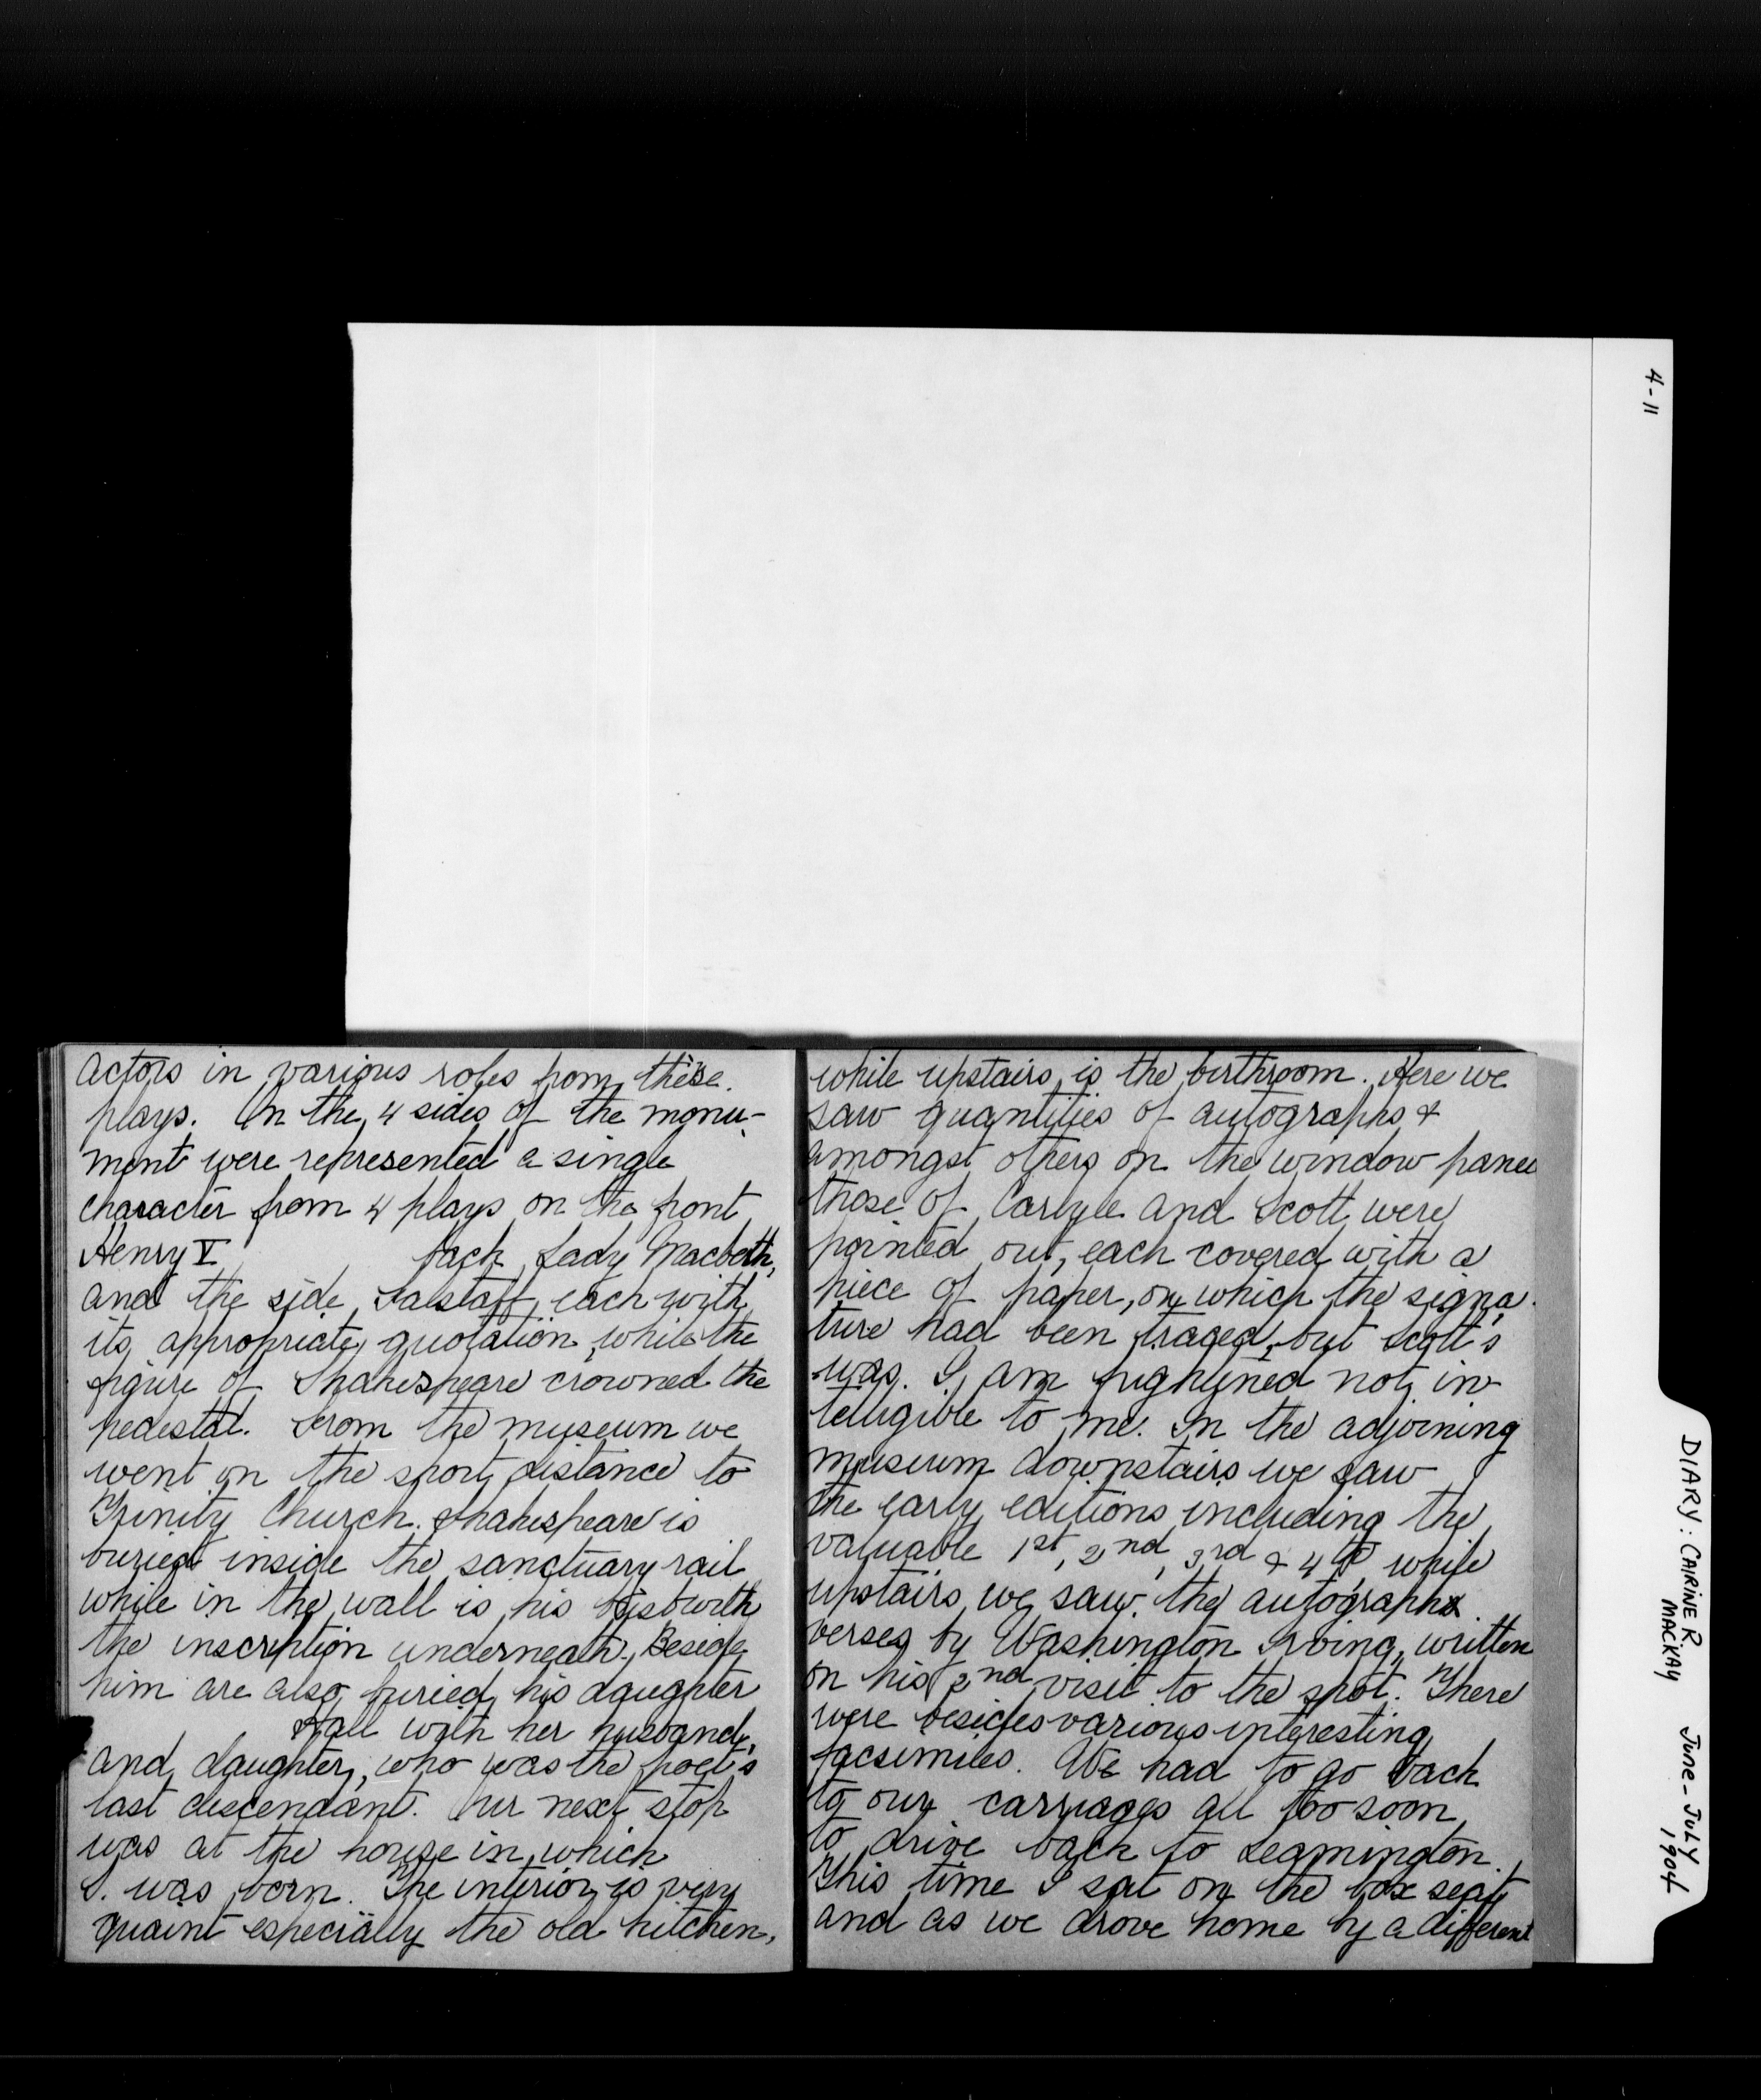 4-11
DIARY: CAIRINE R.
MACKAY
June - July
1904
actors in various roles from these
plays. On the 4 sides of the monu-
ment were represented a single
character from 4 plays on the front
Henry V back Lady Macbeth,
and the side Falstaff, each with
its appropriate quotation, while the
figure of Shakespeare crowned the
pedestal. From the museum we
went on the short distance to
Trinity Church. Shakespeare is
buried inside the sanctuary rail
while in the wall is his bust with
the inscription underneath. Beside
him are also buried his daughter
Hall with her husband,
and daughter, who was the poet's
last descendant. Our next stop
was at the house in which
S. was born. The interior is very
quaint especially the old kitchen,
while upstairs is the birthroom. Here we
saw quantities of autographs &
amongst others on the window panes
those of Carlyle and Scott were
pointed out, each covered with a
piece of paper, on which the signa-
ture had been traced, but Scott's
was, I am frightened not in-
telligible to me. In the adjoining
museum downstairs we saw
the early editions including the
valuable 1st, 2nd, 3rd & 4th, while
upstairs we saw the autograph
verses by Washington Irving, written
on his 2nd visit to the spot. There
were besides various interesting
facsimiles. We had to go back
to our carriages all too soon
to drive back to Leamington.
This time I sat on the box seat
and as we drove home by a different